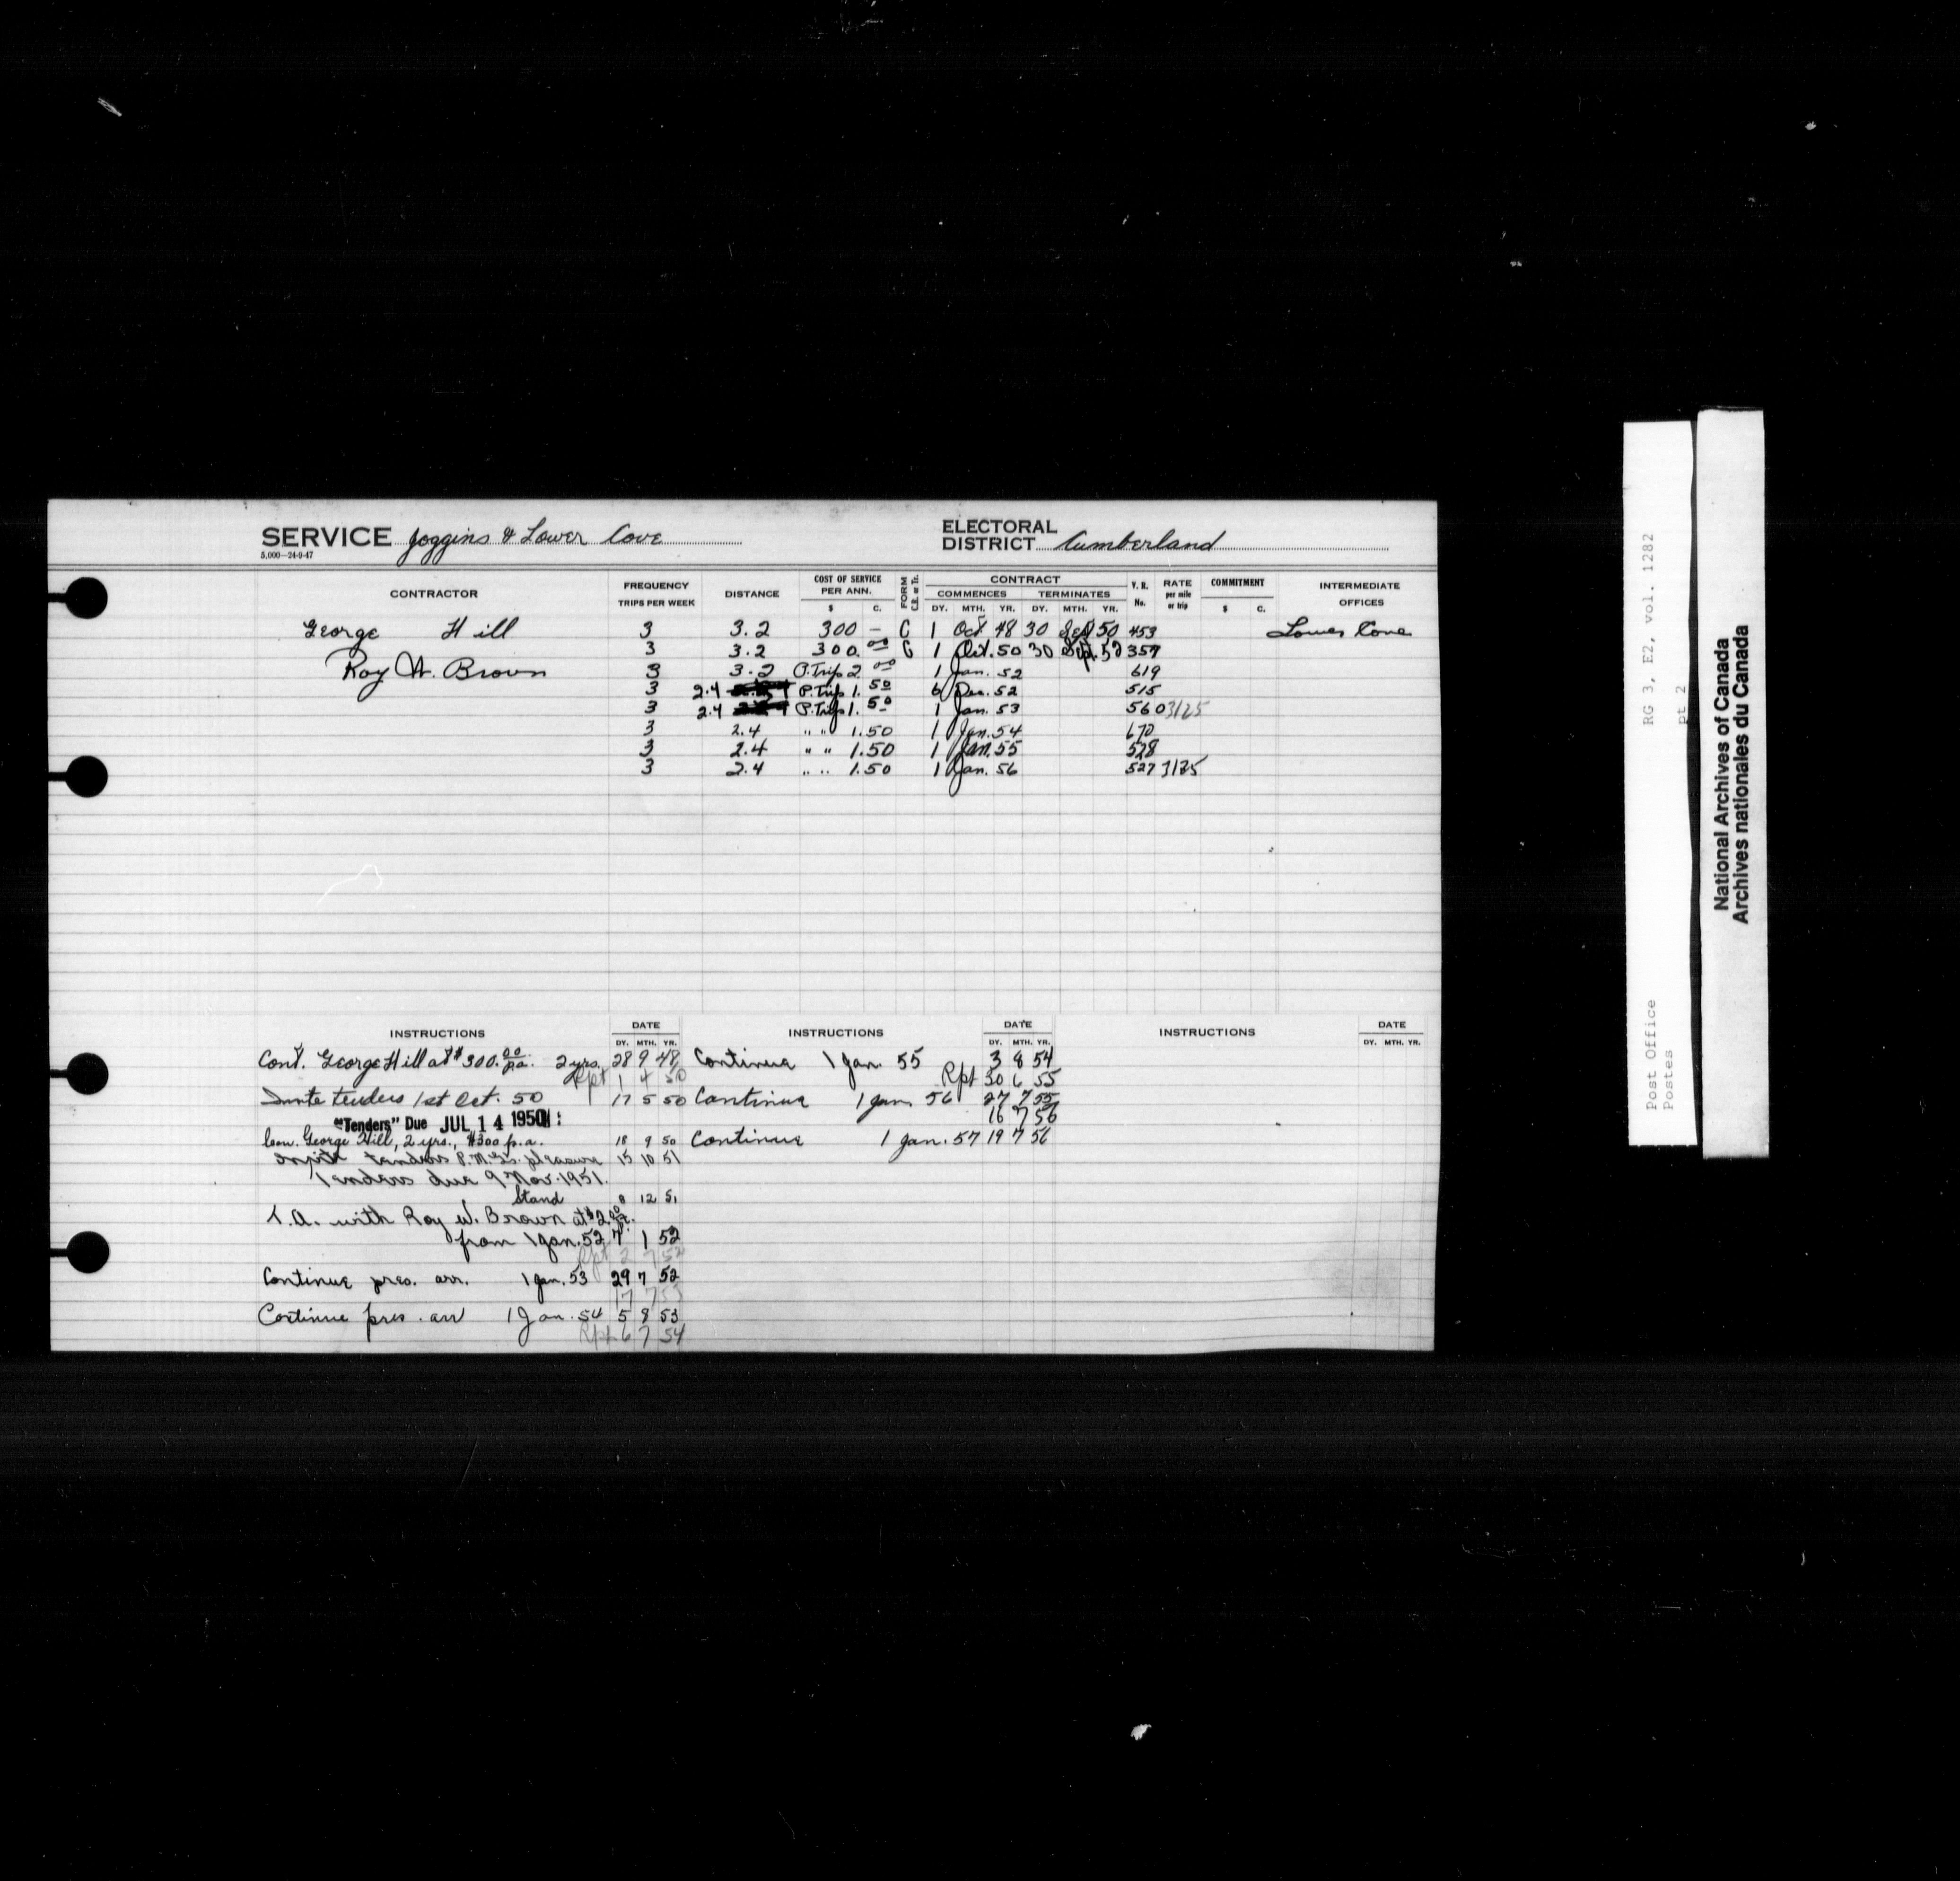 SERVICE Joggins & Lower Cove
5,000—24-9-47
ELECTORAL DISTRICT Cumberland
CONTRACTOR FREQUENCY TRIPS PER WEEK DISTANCE COST OF SERVICE PER ANN. $ C. FORM C.R. or Te. CONTRACT COMMENCES DY. MTH. YR. TERMINATES DY. MTH. YR. V. R. No. RATE per mile or trip COMMITMENT $ C. INTERMEDIATE OFFICES
George Hill 3 3.2 300 — C 1 Oct 48 30 Sep 50 453 Lower Cove
3 3.2 300.00 C 1 Oct. 50 30 Sep. 52 357
Roy W. Brown 3 3.2 P. Trip 2.00 1 Jan. 52 619
3 2.4 P. Trip 1.50 6 Dec. 52 515
3 2.4 P. Trip 1.50 1 Jan. 53 560 3125
3 2.4 " " 1.50 1 Jan. 54 670
3 2.4 " " 1.50 1 Jan. 55 528
3 2.4 " " 1.50 1 Jan. 56 527 3125
INSTRUCTIONS DATE DY. MTH. YR. INSTRUCTIONS DATE DY. MTH. YR. INSTRUCTIONS DATE DY. MTH. YR.
Cont. George Hill at $300.00 p.a. 2 yrs. 28 9 48
Rpt 1 4 50
Invite tenders 1st Oct. 50 17 5 50
"Tenders" Due JUL 14 1950
Con. George Hill, 2 yrs., $300 p.a. 18 9 50
Invite tenders P.M.G's. pleasure 15 10 51
Tenders due 9 Nov. 1951.
Stand 8 12 51
T.A. with Roy W. Brown at $2.00
from 1 Jan. 52 7 1 52
Rpt 2 7 52
Continue pres. arr. 1 Jan. 53 29 7 52
17 7 53
Continue pres. arr 1 Jan. 54 5 8 53
Rpt 6 7 54
Continue 1 Jan. 55 3 8 54
Rpt 30 6 55
Continue 1 Jan. 56 27 7 55
16 7 56
Continue 1 Jan. 57 19 7 56
Post Office
Postes
RG 3, E2, vol. 1282
pt 2
National Archives of Canada
Archives nationales du Canada